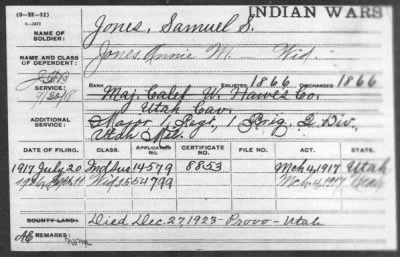 (3-H-11)
INDIAN WARS
NAME OF SOLDIER: Jones, Samuel S.
NAME AND CLASS OF DEPENDENT: Jones Annie M. — Wid.
RANK ENLISTED 1866 DISCHARGED 1866
SERVICE: Maj. Calef W. Hawes Co.
Utah Cav.
ADDITIONAL SERVICE: Major 1 Regt, 1 Brig. 2 Div.
Utah Mil.
DATE OF FILING. CLASS. APPLICATION NO. CERTIFICATE NO. FILE NO. ACT. STATE.
1917 July 20 Ind Sur 14579 8853 Mch 4, 1917 Utah
Wid 1554799 Mch 4, 1917
BOUNTY LAND: Died Dec. 27, 1923 – Provo – Utah
REMARKS: